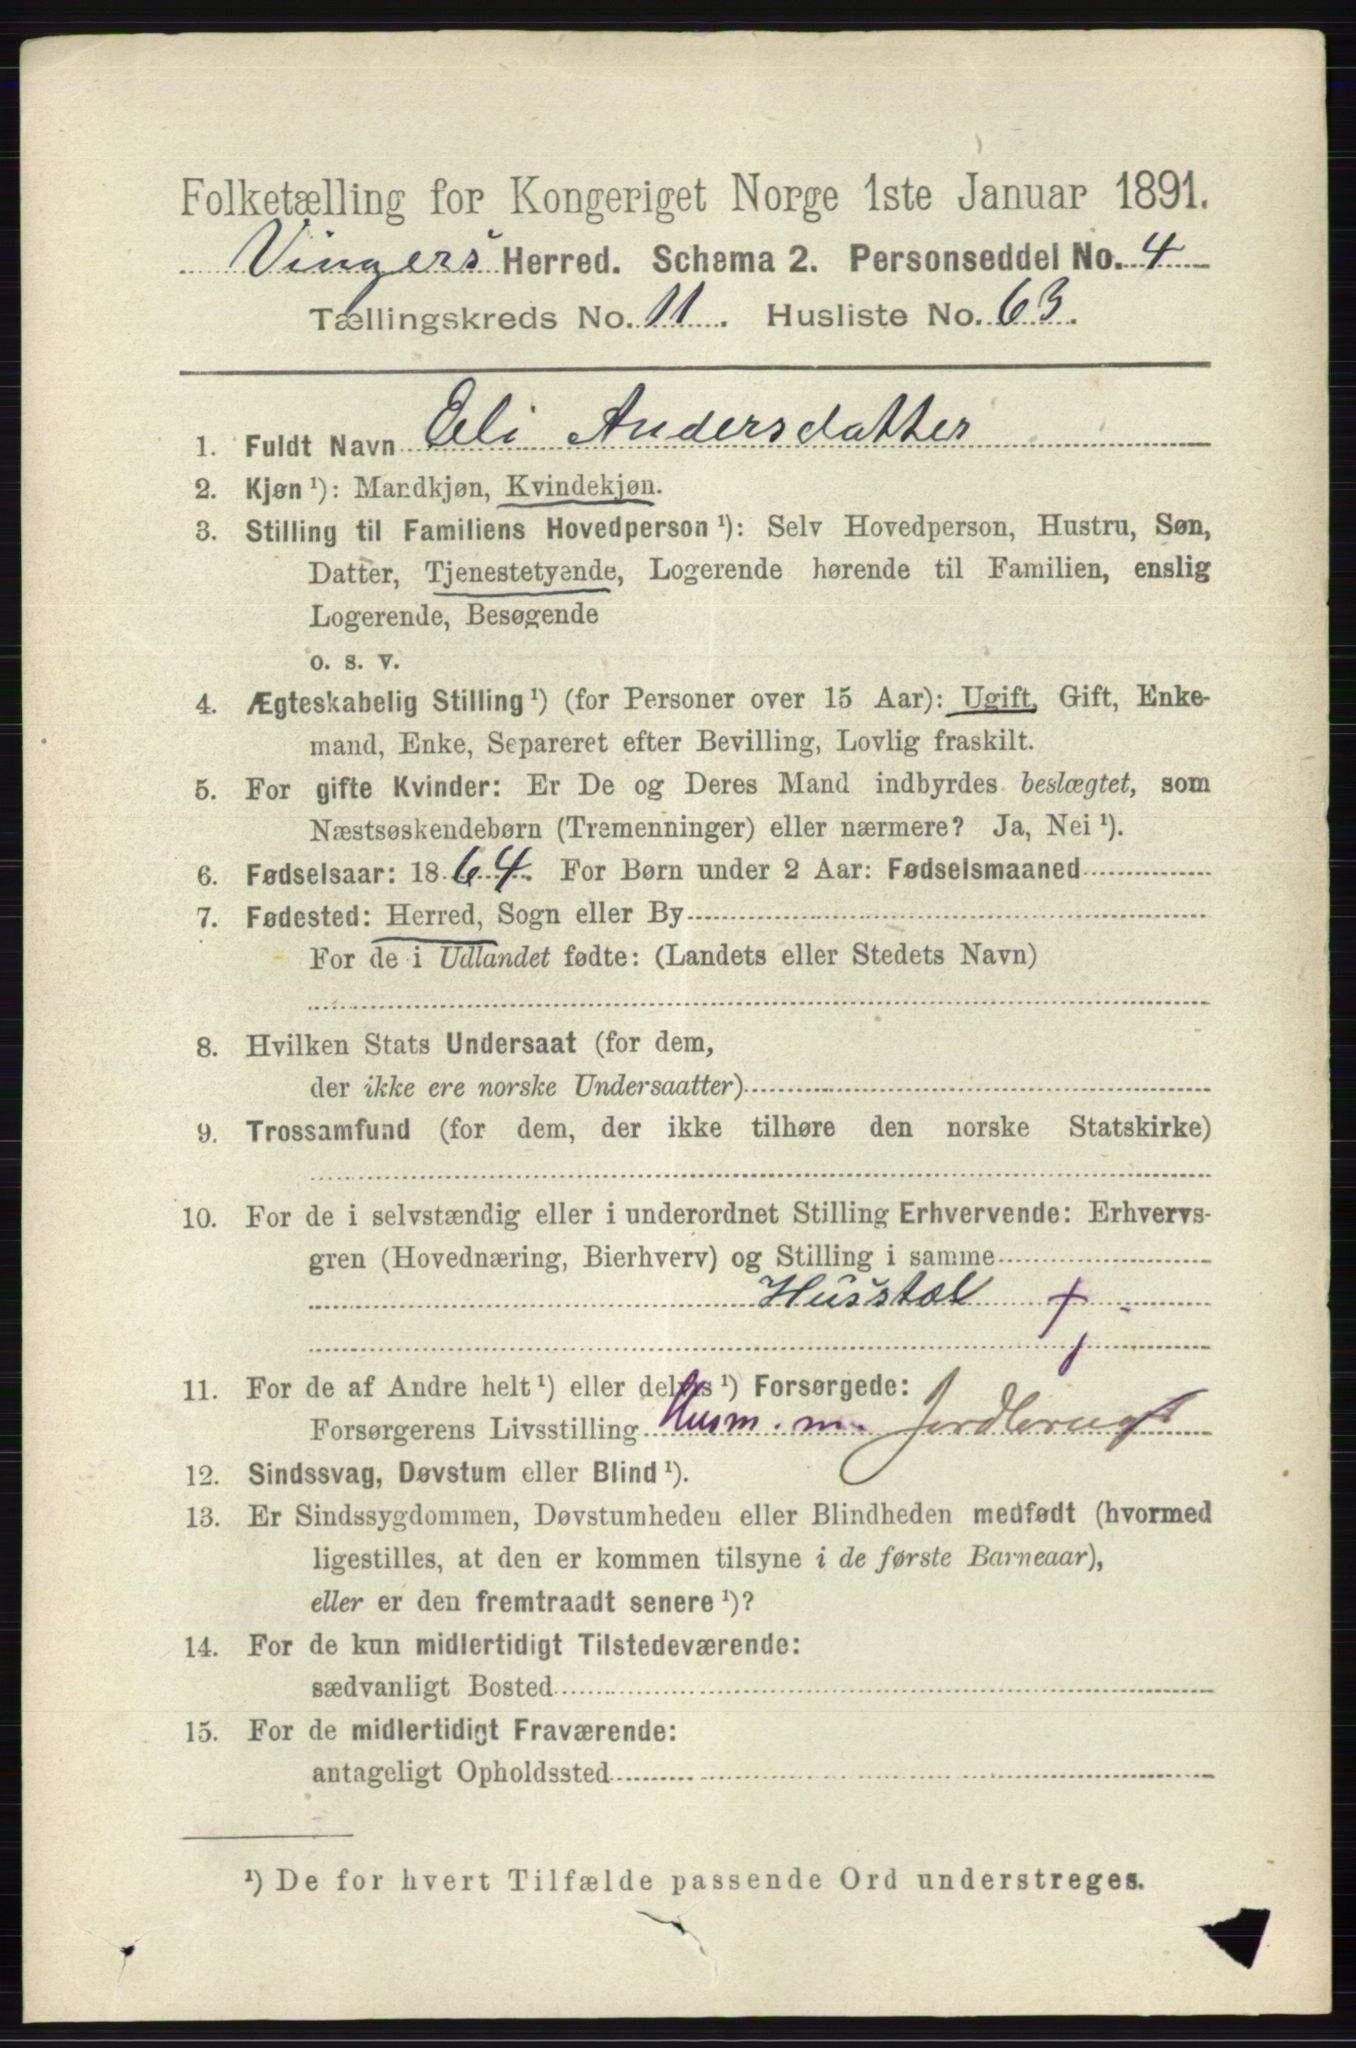 Folketælling for Kongeriget Norge 1ste Januar 1891.
Vingers Herred. Schema 2. Personseddel No. 4
Tællingskreds No. 11. Husliste No. 63.
1. Fuldt Navn Eli Andersdatter
2. Kjøn ¹): Mandkjøn, Kvindekjøn.
3. Stilling til Familiens Hovedperson ¹): Selv Hovedperson, Hustru, Søn,
Datter, Tjenestetyende, Logerende hørende til Familien, enslig
Logerende, Besøgende
o. s. v.
4. Ægteskabelig Stilling ¹) (for Personer over 15 Aar): Ugift, Gift, Enke-
mand, Enke, Separeret efter Bevilling, Lovlig fraskilt.
5. For gifte Kvinder: Er De og Deres Mand indbyrdes beslægtet, som
Næstsøskendebørn (Tremenninger) eller nærmere? Ja, Nei ¹).
6. Fødselsaar: 1864. For Børn under 2 Aar: Fødselsmaaned
7. Fødested: Herred, Sogn eller By
For de i Udlandet fødte: (Landets eller Stedets Navn)
8. Hvilken Stats Undersaat (for dem,
der ikke ere norske Undersaatter)
9. Trossamfund (for dem, der ikke tilhøre den norske Statskirke)
10. For de i selvstændig eller i underordnet Stilling Erhvervende: Erhvervs-
gren (Hovednæring, Bierhverv) og Stilling i samme
Husstel
11. For de af Andre helt ¹) eller delvis ¹) Forsørgede:
Forsørgerens Livsstilling Husm. m. Jordbrug
12. Sindssvag, Døvstum eller Blind ¹).
13. Er Sindssygdommen, Døvstumheden eller Blindheden medfødt (hvormed
ligestilles, at den er kommen tilsyne i de første Barneaar),
eller er den fremtraadt senere ¹)?
14. For de kun midlertidigt Tilstedeværende:
sædvanligt Bosted
15. For de midlertidigt Fraværende:
antageligt Opholdssted
¹) De for hvert Tilfælde passende Ord understreges.